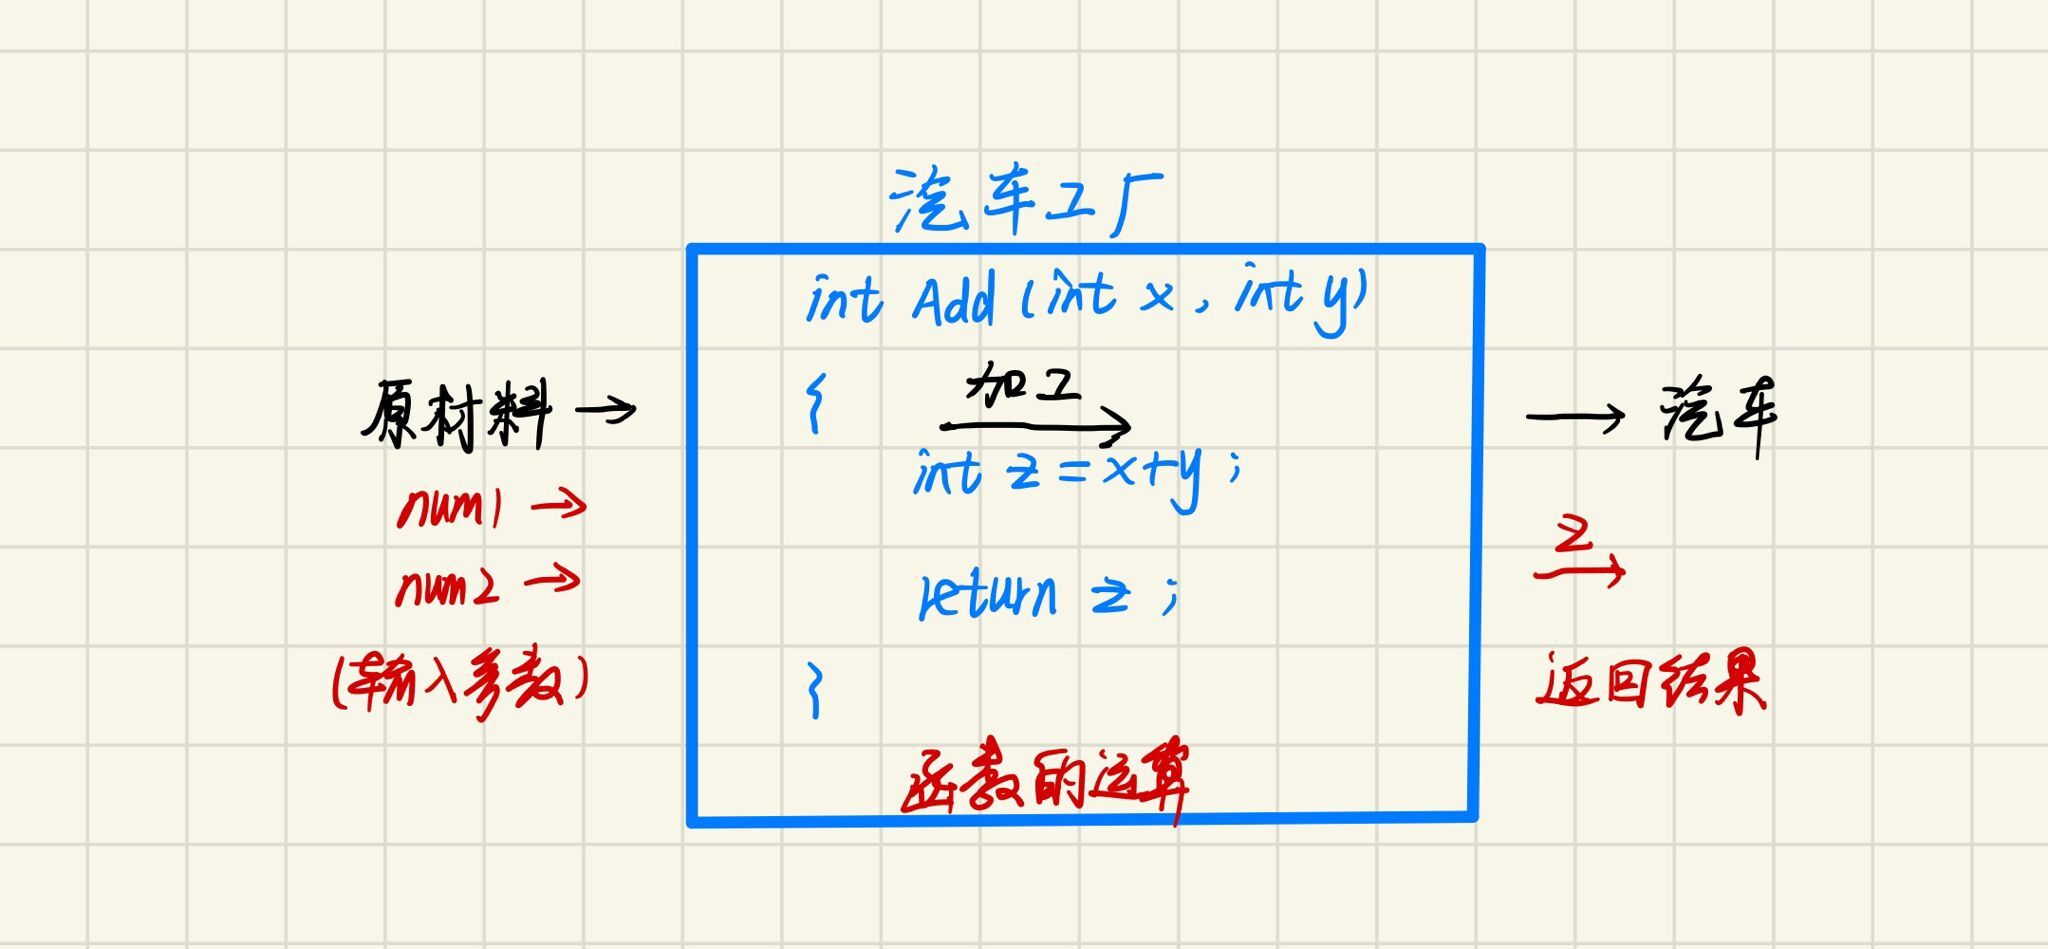 汽车工厂
int Add (int x, int y)
{
加工
原材料 →
→ 汽车
int z = x+y;
num1 →
z
→
num2 →
return z;
(输入参数)
}
返回结果
函数的运算